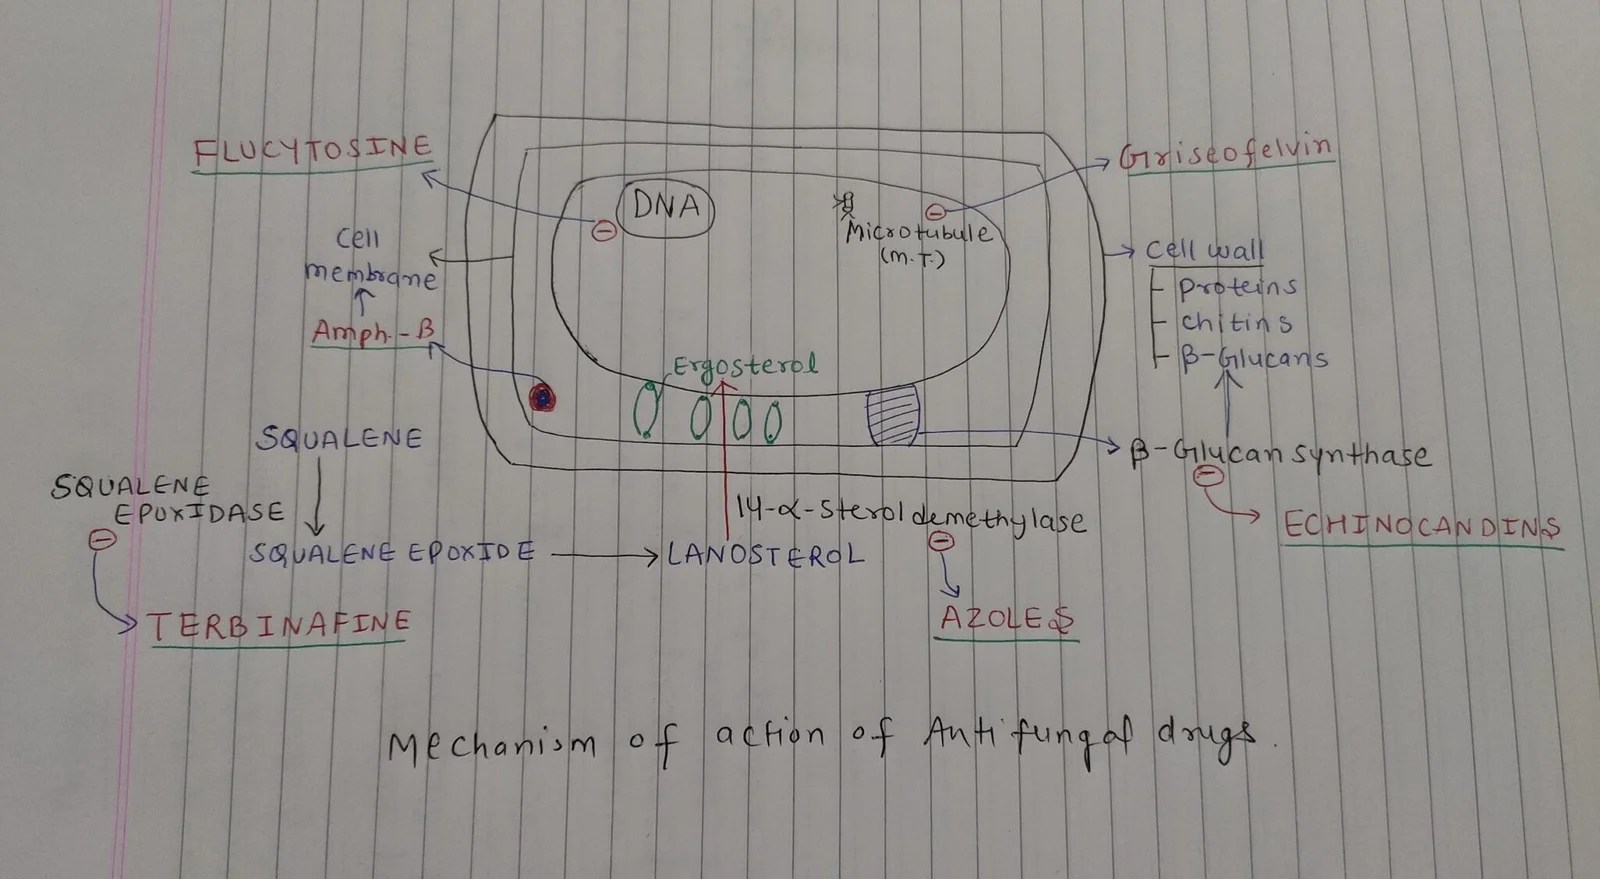 FLUCYTOSINE
Griseofelvin
DNA
Microtubule
(M.T.)
Cell
membrane
Amph.-B
Cell wall
Proteins
Chitins
β-Glucans
Ergosterol
β-Glucan synthase
ECHINOCANDINS
SQUALENE
SQUALENE
EPOXIDASE
SQUALENE EPOXIDE
LANOSTEROL
14-α-Sterol demethylase
TERBINAFINE
AZOLES
Mechanism of action of Antifungal drugs.